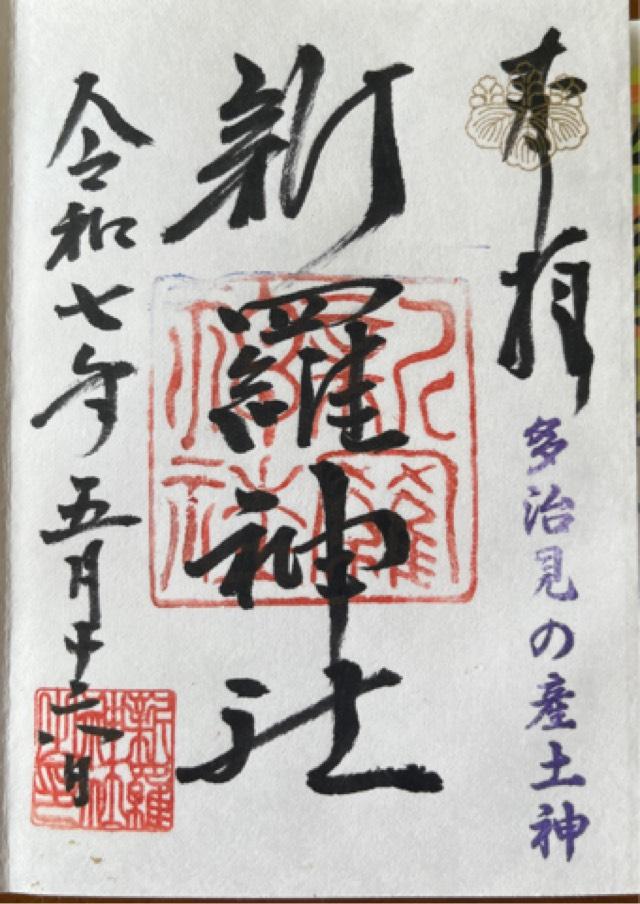 奉拝
多治見の産土神
新羅神社
令和七年五月十六日
新羅神社